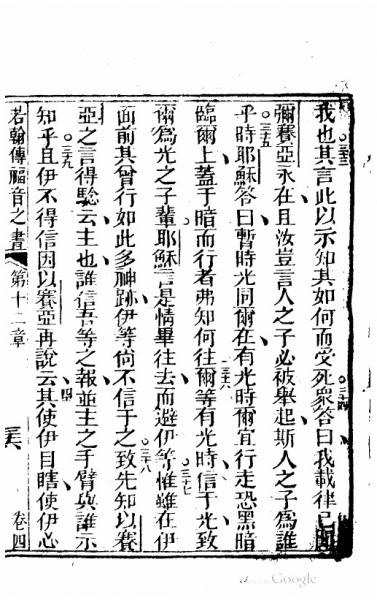 我也其言此以示知其如何而受死衆答曰我載律已聞
彌賽亞永在且汝豈言人之子必被舉起斯人之子爲誰
乎時耶穌答曰暫時光同爾在有光時爾宜行走恐黑暗
臨爾上蓋于暗而行者弗知何往爾等有光時信于光致
爾爲光之子輩耶穌言是情畢往去而避伊等惟雖在伊
面前其曾行如此多神跡伊等尚不信于之致先知以賽
亞之言得驗云主也誰信吾等之報並主之手臂與誰示
知乎且伊不得信因以賽亞再說云其使伊目瞎使伊心
若翰傳福音之書 第十二章 卷四
三三
三四
三五
三六
三七
三八
三九
四
Google